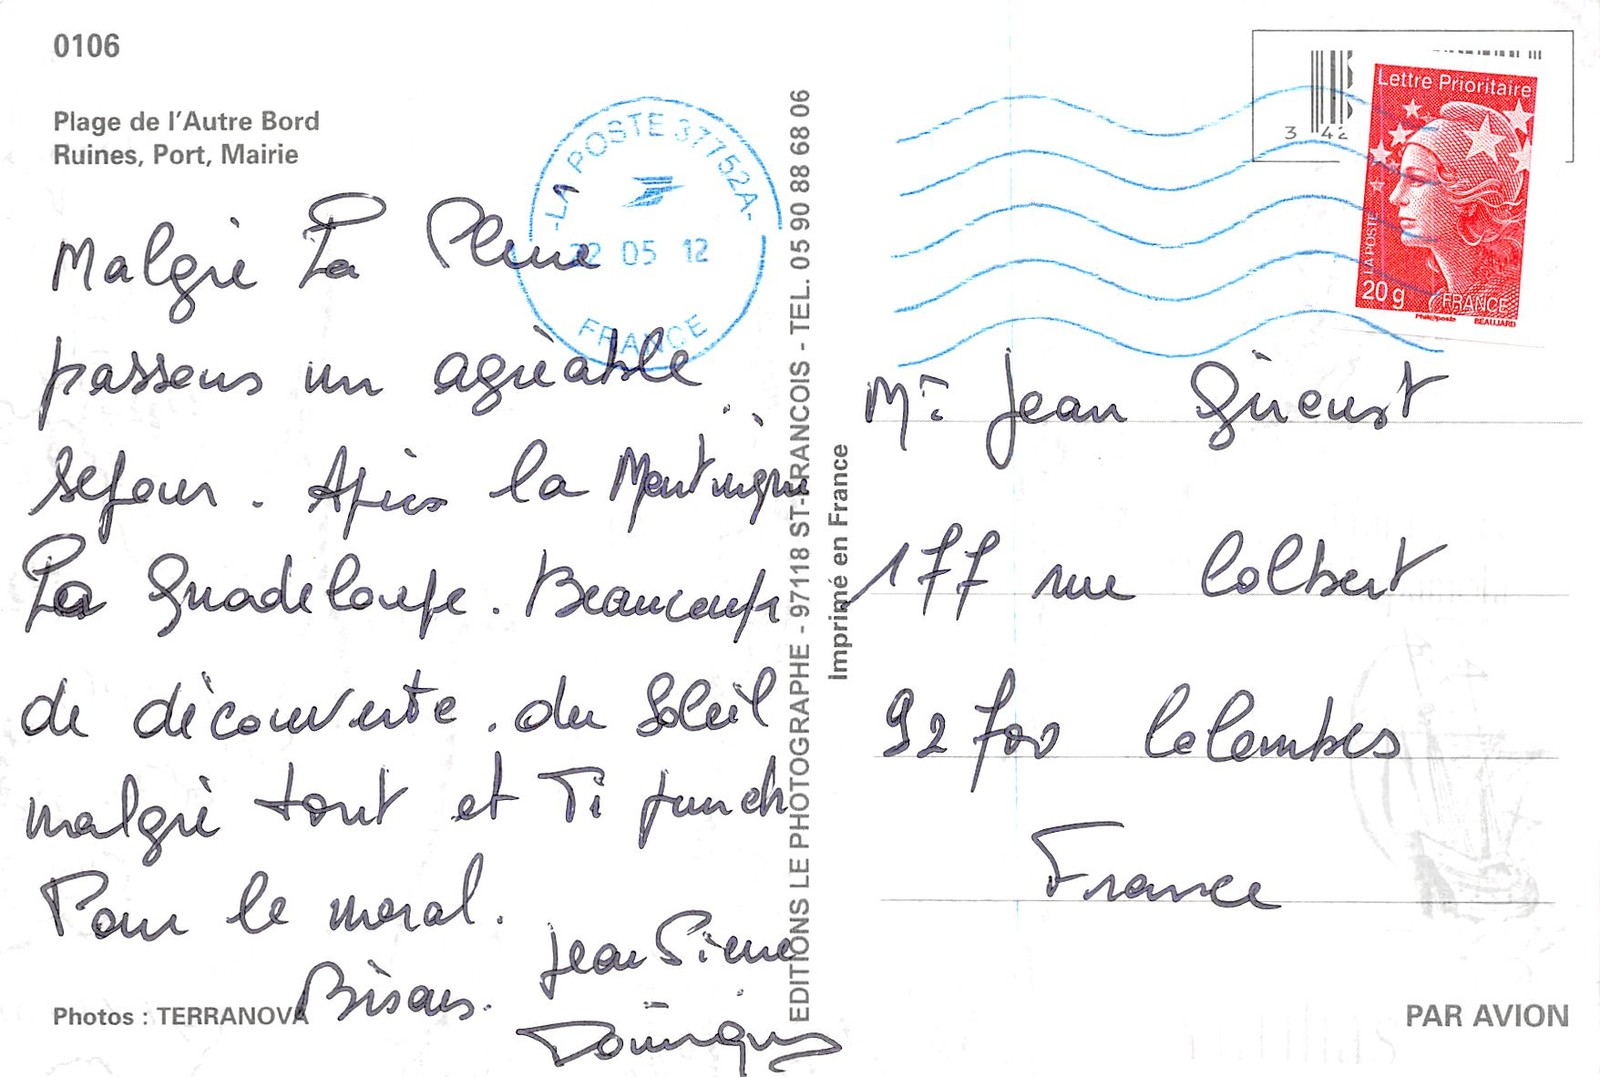 0106
Plage de l'Autre Bord
Ruines, Port, Mairie
Malgré La Pluie
passons un agréable
séjour. Après la Martinique
La Guadeloupe. Beaucoup
de découverte. du Soleil
malgré tout et Ti punch
Pour le moral.
Bisous.
Jean Pierre
Dominique
Photos : TERRANOVA
LA POSTE 37752A
22 05 12
FRANCE
EDITIONS LE PHOTOGRAPHE - 97118 ST-FRANCOIS - TEL. 05 90 88 68 06
Imprimé en France
3 42
Lettre Prioritaire
LA POSTE
20 g FRANCE
Phil@poste BEAUJARD
Mr Jean
177 rue Colbert
92700 Colombes
France
PAR AVION